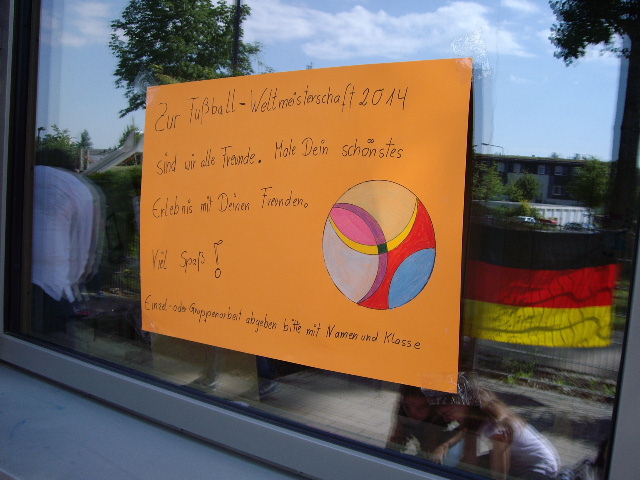 Zur Fußball-Weltmeisterschaft 2014
sind wir alle Freunde. Male Dein schönstes
Erlebnis mit Deinen Freunden.
Viel Spaß!
Einzel- oder Gruppenarbeit abgeben bitte mit Namen und Klasse